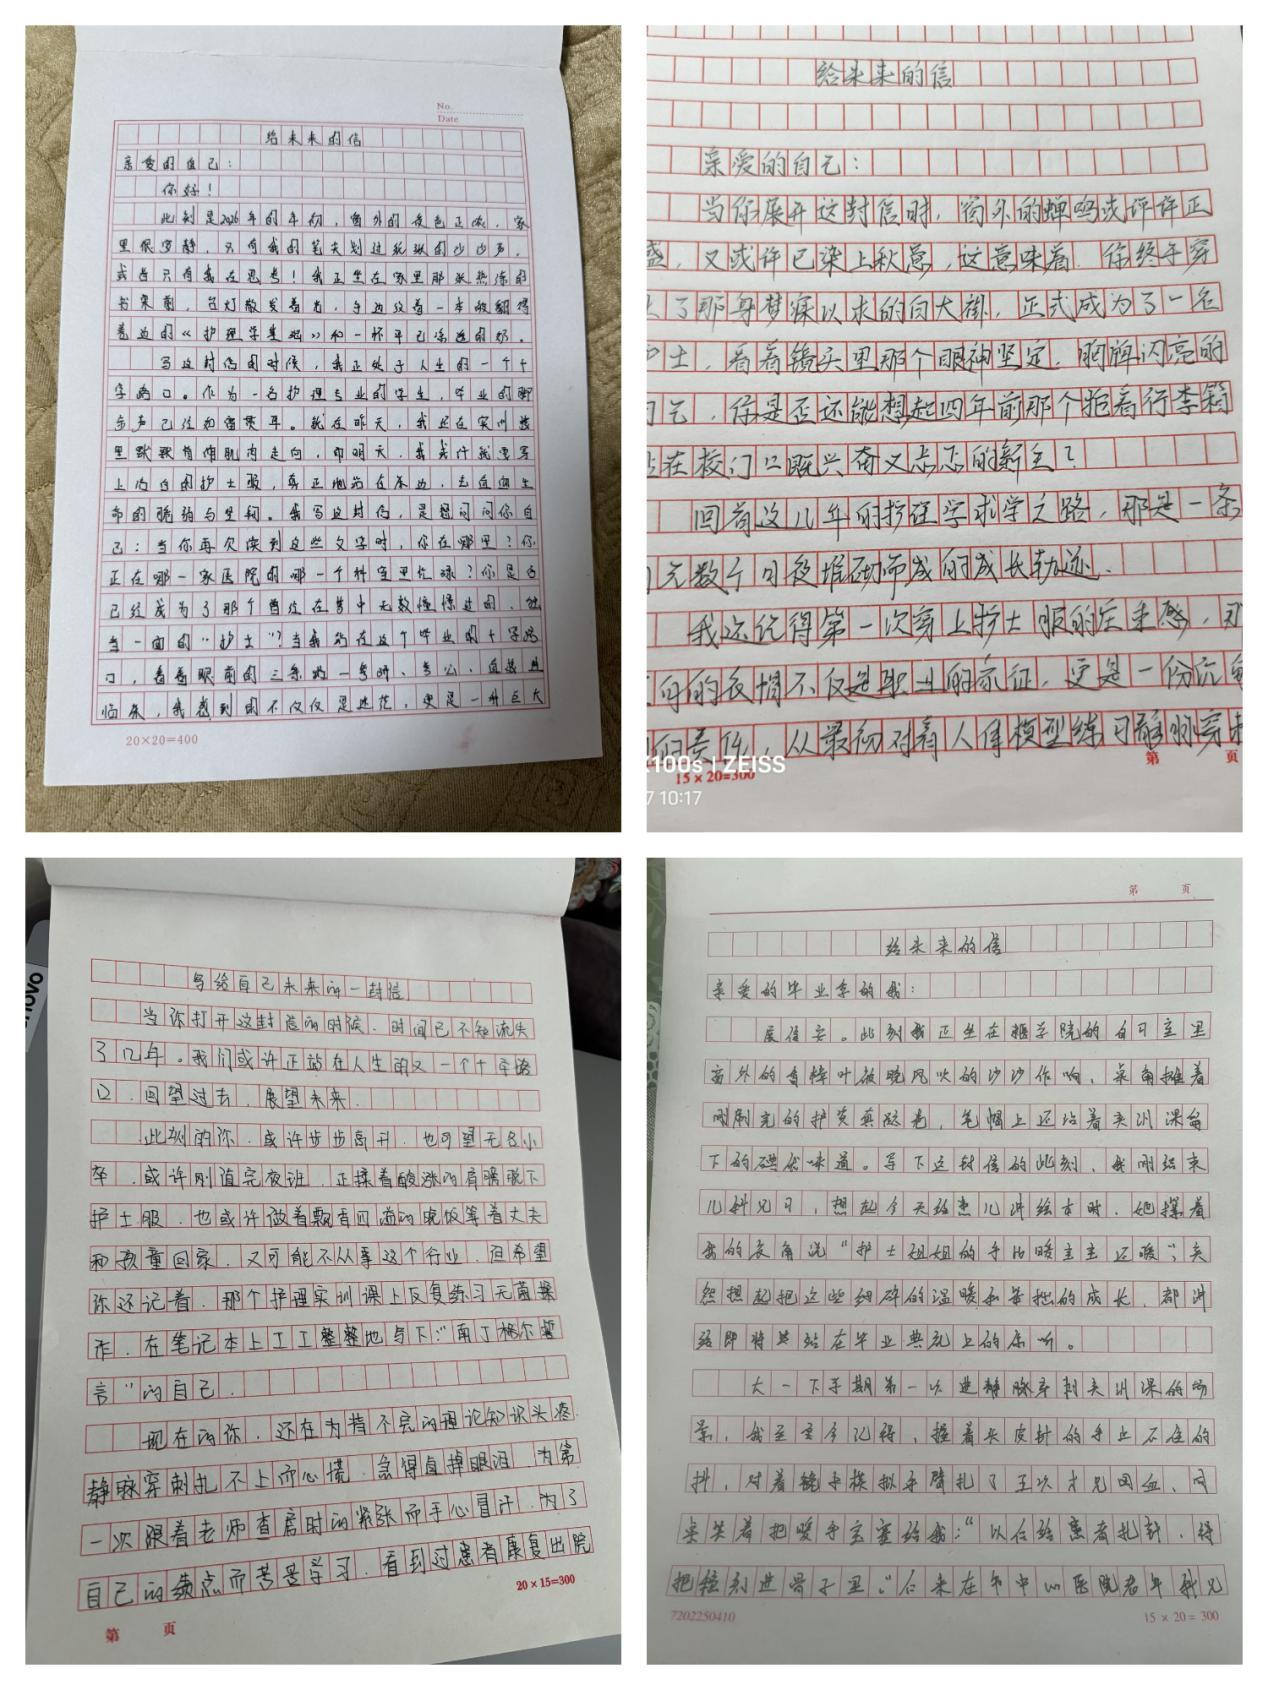 No.
Date
给未来的信
亲爱的自己：
你好！
此刻是2026年的年初，窗外的夜色正浓，家
里很宁静，只有我的笔尖划过纸张的沙沙声，
或者只有我在思考！我正坐在家里那张熟悉的
书桌前，台灯散发着光，手边放着一本被翻得
卷边的《护理学基础》和一杯早已凉透的奶。
写这封信的时候，我正处于人生的一个十
字路口。作为一名护理专业的学生，毕业的脚
步声已经如雷贯耳。就在昨天，我还在实训楼
里默默背诵肌肉走向，即明天，我或许就要穿
上洁白的护士服，真正地站在床边，去直面生
命的脆弱与坚韧。我写这封信，是想问问你自
己：当你再次读到这些文字时，你在哪里？你
正在哪一家医院的哪一个科室里忙碌？你是否
已经成为了那个曾经在梦中无数憧憬过的、独
当一面的“护士”？当我站在这个毕业的十字路
口，看着眼前的三条路一考研、考公、直接进
临床，我感到的不仅仅是迷茫，更是一种巨大
20×20=400
给未来的信
亲爱的自己：
当你展开这封信时，窗外的蝉鸣或许正
盛，又或许已染上秋意，这意味着，你终于穿
了那身梦寐以求的白大褂，正式成为了一名
士，看着镜头里那个眼神坚定，胸牌闪亮的
，你是否还能想起四年前那个拖着行李箱
在校门口既兴奋又忐忑的新生？
回首这几年的护理学求学之路，那是一条
无数个日夜堆砌而成的成长轨迹．
我还记得第一次穿上护士服的庄重感，那
的衣帽不仅是职业的象征，更是一份沉
的责任，从最初对着人体模型练习静脉穿刺
X100s | ZEISS
15×20=300
第 页
7 10:17
写给自己未来的一封信
当你打开这封信的时候，时间已不知流失
了几年。我们或许正站在人生的又一个十字路
口，回望过去，展望未来．
此刻的你，或许步步高升，也可望无名小
卒，或许刚值完夜班，正揉着酸涨的肩膀脱下
护士服，也或许做着飘香四溢的晚饭等着丈夫
和孩童回家，又可能不从事这个行业，但希望
你还记着，那个护理实训课上反复练习无菌操
作，在笔记本上工工整整地写下：“南丁格尔誓
言”的自己．
现在的你，还在为背不完的理论知识头疼
静脉穿刺扎不上而心慌，急得直掉眼泪，为第
一次跟着老师查房时的紧张而手心冒汗，为了
自己的绩点而苦苦学习．看到过患者康复出院
20×15=300
第 页
第 页
给未来的信
亲爱的毕业季的我：
展信安。此刻我正坐在医学院的自习室里
窗外的香樟叶被晚风吹的沙沙作响，桌角摊着
刚刷完的护资真题卷，笔帽上还沾着实训课留
下的碘伏味道。写下这封信的此刻，我刚结束
儿科见习，想起今天给患儿讲绘本时，她攥着
我的衣角说“护士姐姐的手比暖宝宝还暖”，突
然想起把这些细碎的温暖和笨拙的成长，都讲
给即将要站在毕业典礼上的你听。
大一下学期第一次进静脉穿刺实训课的场
景，我至今记得，握着头皮针的手止不住的
抖，对着镜子模拟手臂扎了三次才见回血，同
桌笑着把暖手宝塞给我：“以后给患者扎针，得
把轻刻进骨子里。”后来在市中心医院老年科见
7202250410
15×20=300